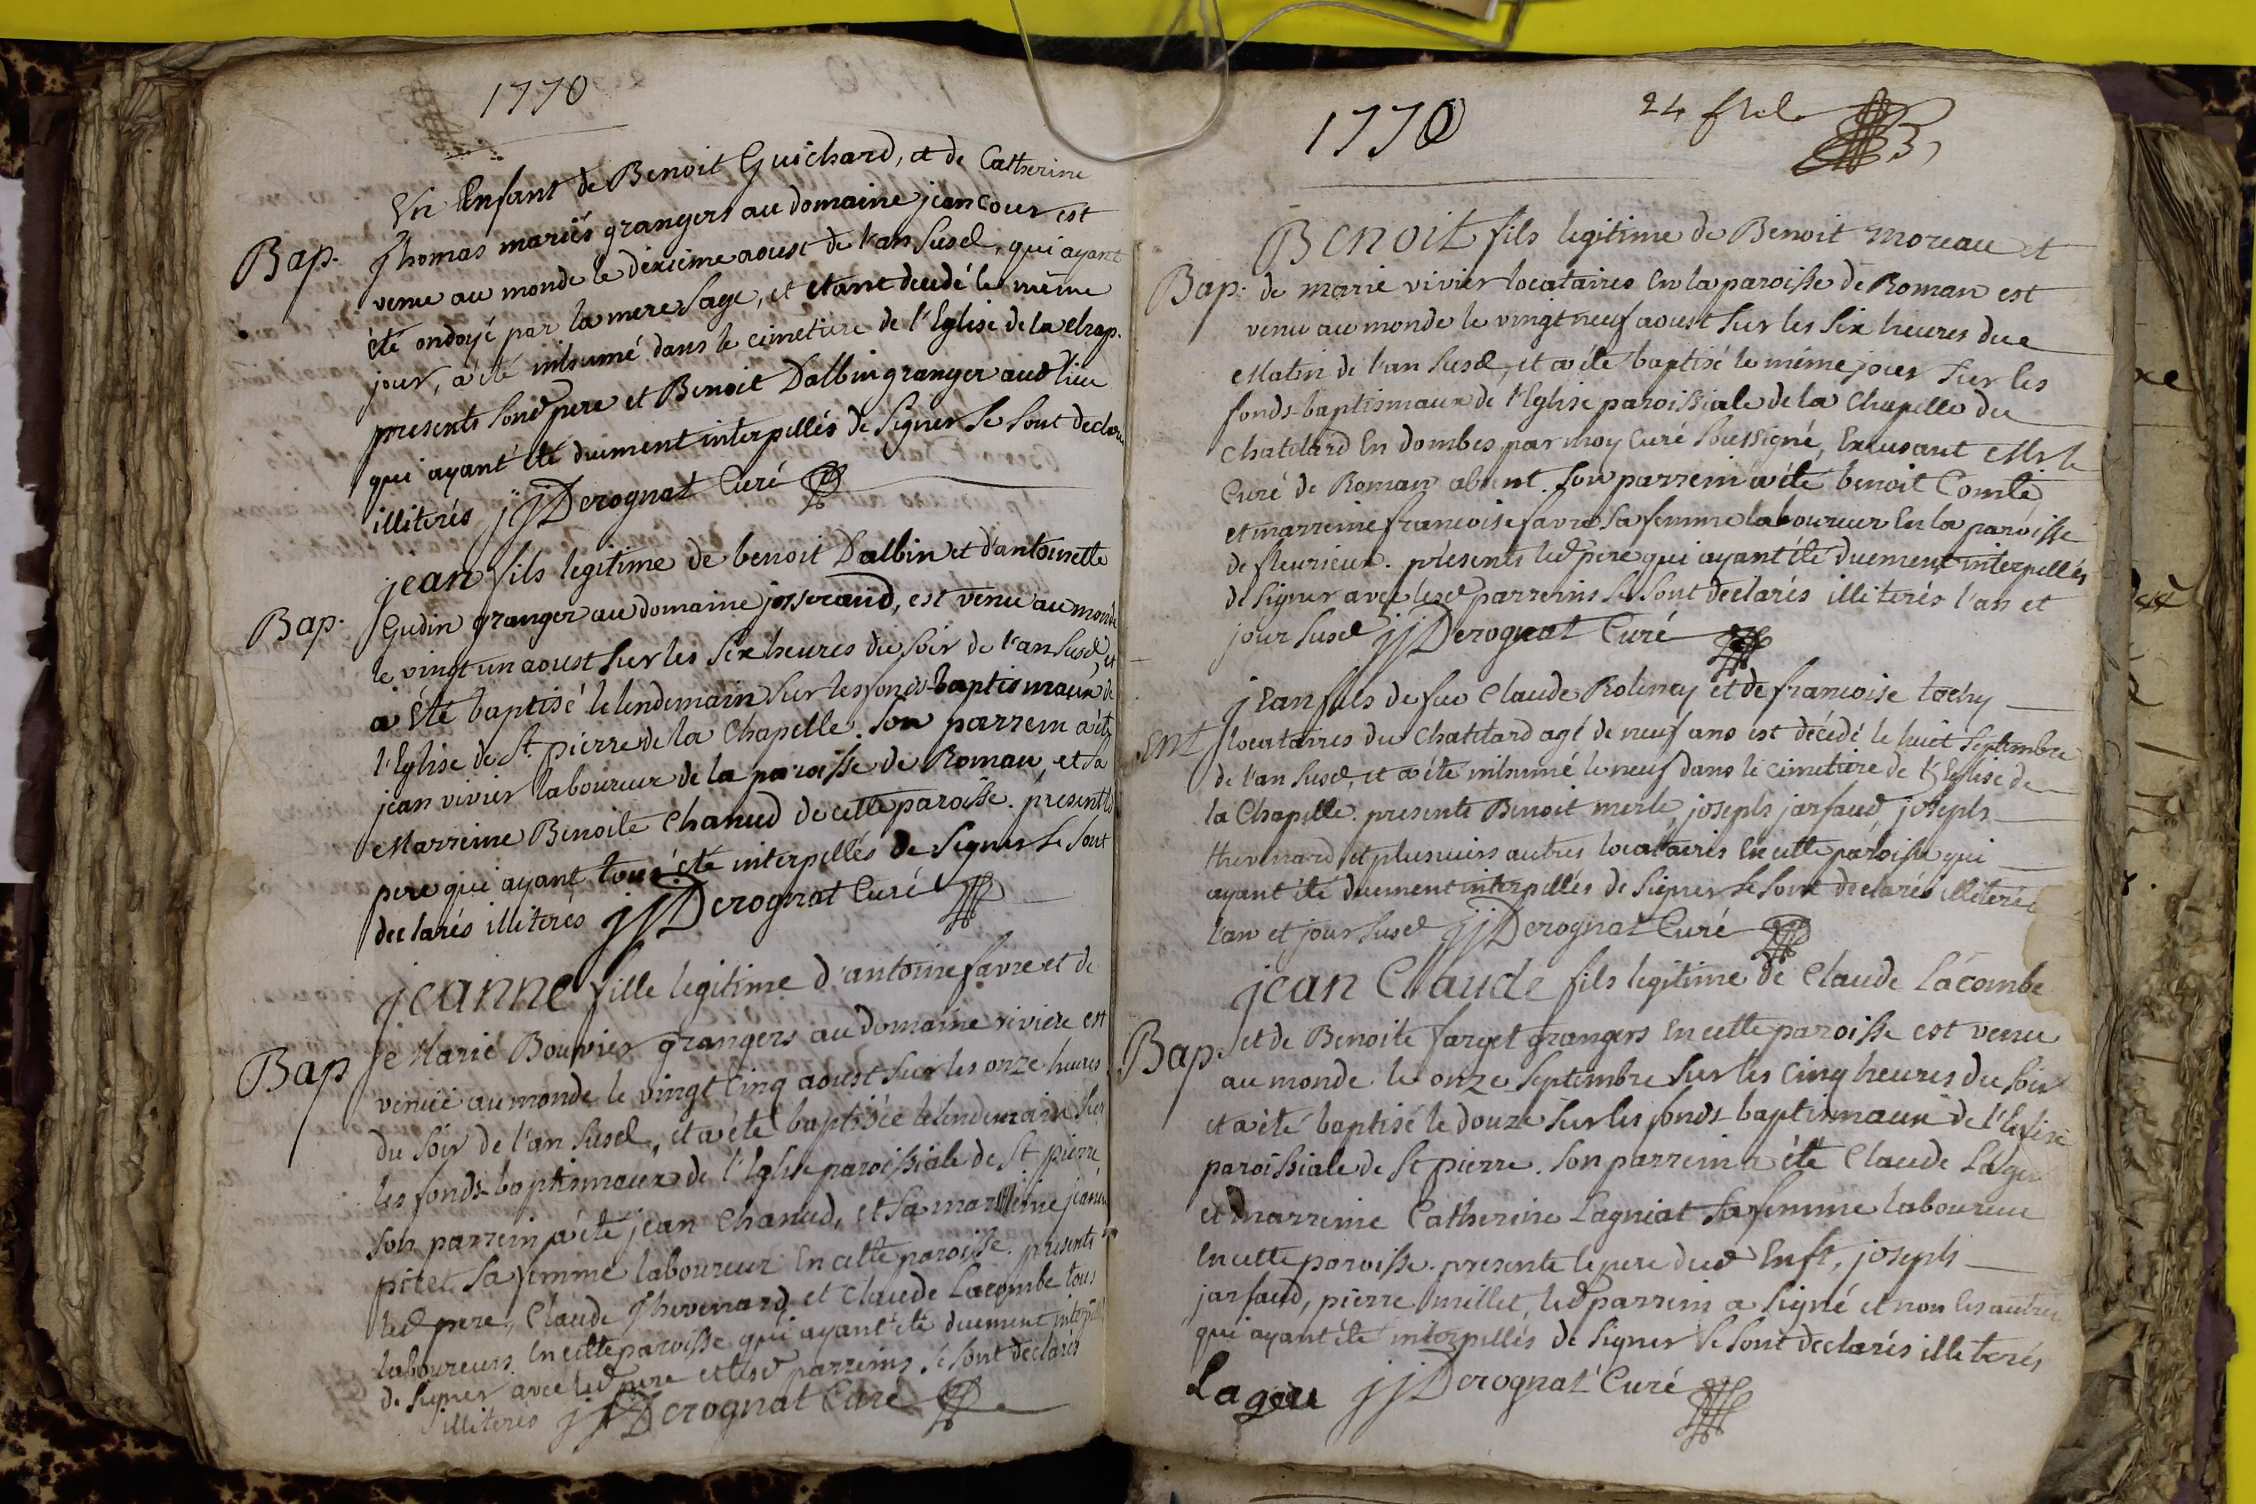 1770
Un Enfant de Benoit Guichard, et de Catherine
Bap. Thomas mariés grangers au domaine jean cour est
venu au monde le dixieme aoust de l'an susd, qui ayant
été ondoyé par la mere sage, et etant decedé le même
jour, a été inhumé dans le cimetiere de l'Eglise de la Chap.
presents sond pere et Benoit Dalbin granger aud lieu
qui ayant été duement interpellés de signer se sont declarés
illiterés jjDerognat Curé
jean fils legitime de benoit Dalbin et d'antoinette
Bap. Gudin granger au domaine josserand, est venu au monde
le vingt un aoust sur les six heures du soir de l'an susd, et
a été baptisé le lendemain sur les fonds-baptismaux de
l'Eglise de St. pierre de la Chapelle. son parrein a été
jean vivier laboureur de la paroisse de Roman, et sa
Marreine Benoite Chanud de cette paroisse. present led
pere qui ayant tous été interpellés de signer se sont
declarés illiterés jjDerognat Curé
jeanne fille legitime d'antoine favre et de
Bap Marie Bouvier grangers au domaine riviere est
venüe au monde le vingt cinq aoust sur les onze heures
du soir de l'an susd, et a été baptisée le lendemain sur
les fonds-baptismaux de l'Eglise paroissiale de St pierre
son parrein a été jean Chanud, et sa marreine jeanne
pitet sa femme laboureur En cette paroisse. presents
led pere, Claude Thevenard, et Claude Lacombe tous
laboureurs En cette paroisse qui ayant été duement interpellés
de signer avec led pere et lesd parreins se sont declarés
illiterés jjDerognat Curé
1770
24
Benoit fils legitime de Benoit Moreau et
Bap. de marie vivier locataires En la paroisse de Roman est
venu au monde le vingt neuf aoust sur les six heures du
Matin de l'an susd, et a été baptisé le même jour sur les
fonds-baptismaux de l'Eglise paroissiale de la Chapelle du
Chatelard En dombes par moy Curé soussigné, Excusant Mr le
Curé de Roman absent. son parrein a été benoit Comte
et marreine francoise favre sa femme laboureur En la paroisse
de fleurieux. presents led pere qui ayant été duement interpellés
de signer avec lesd parreins se sont declarés illiterés l'an et
jour susd jjDerognat Curé
jean fils de feu Claude Roliney et de francoise
locataires du Chatelard agé de neuf ans est décédé le huit septembre
de l'an susd, et a été inhumé le neuf dans le cimetiere de l'Eglise de
la Chapelle. presents Benoit merle, joseph jarfaud, joseph
thevenard et plusieurs autres locataires En cette paroisse qui
ayant été duement interpellés de signer se sont declarés illiterés
l'an et jour susd jjDerognat Curé
jean Claude fils legitime de Claude Lacombe
Bap. et de Benoite farget grangers En cette paroisse est venu
au monde le onze septembre sur les cinq heures du soir
et a été baptisé le douze sur les fonds-baptismaux de l'Eglise
paroissiale de St pierre. son parrein a été Claude Lager
et marreine Catherine Lagniat sa femme laboureur
En cette paroisse. presents le pere dud Enft, joseph
jarfaud, pierre millet, led parrein a signé et non les autres
qui ayant été interpellés de signer se sont declarés illiterés
Lageu jjDerognat Curé